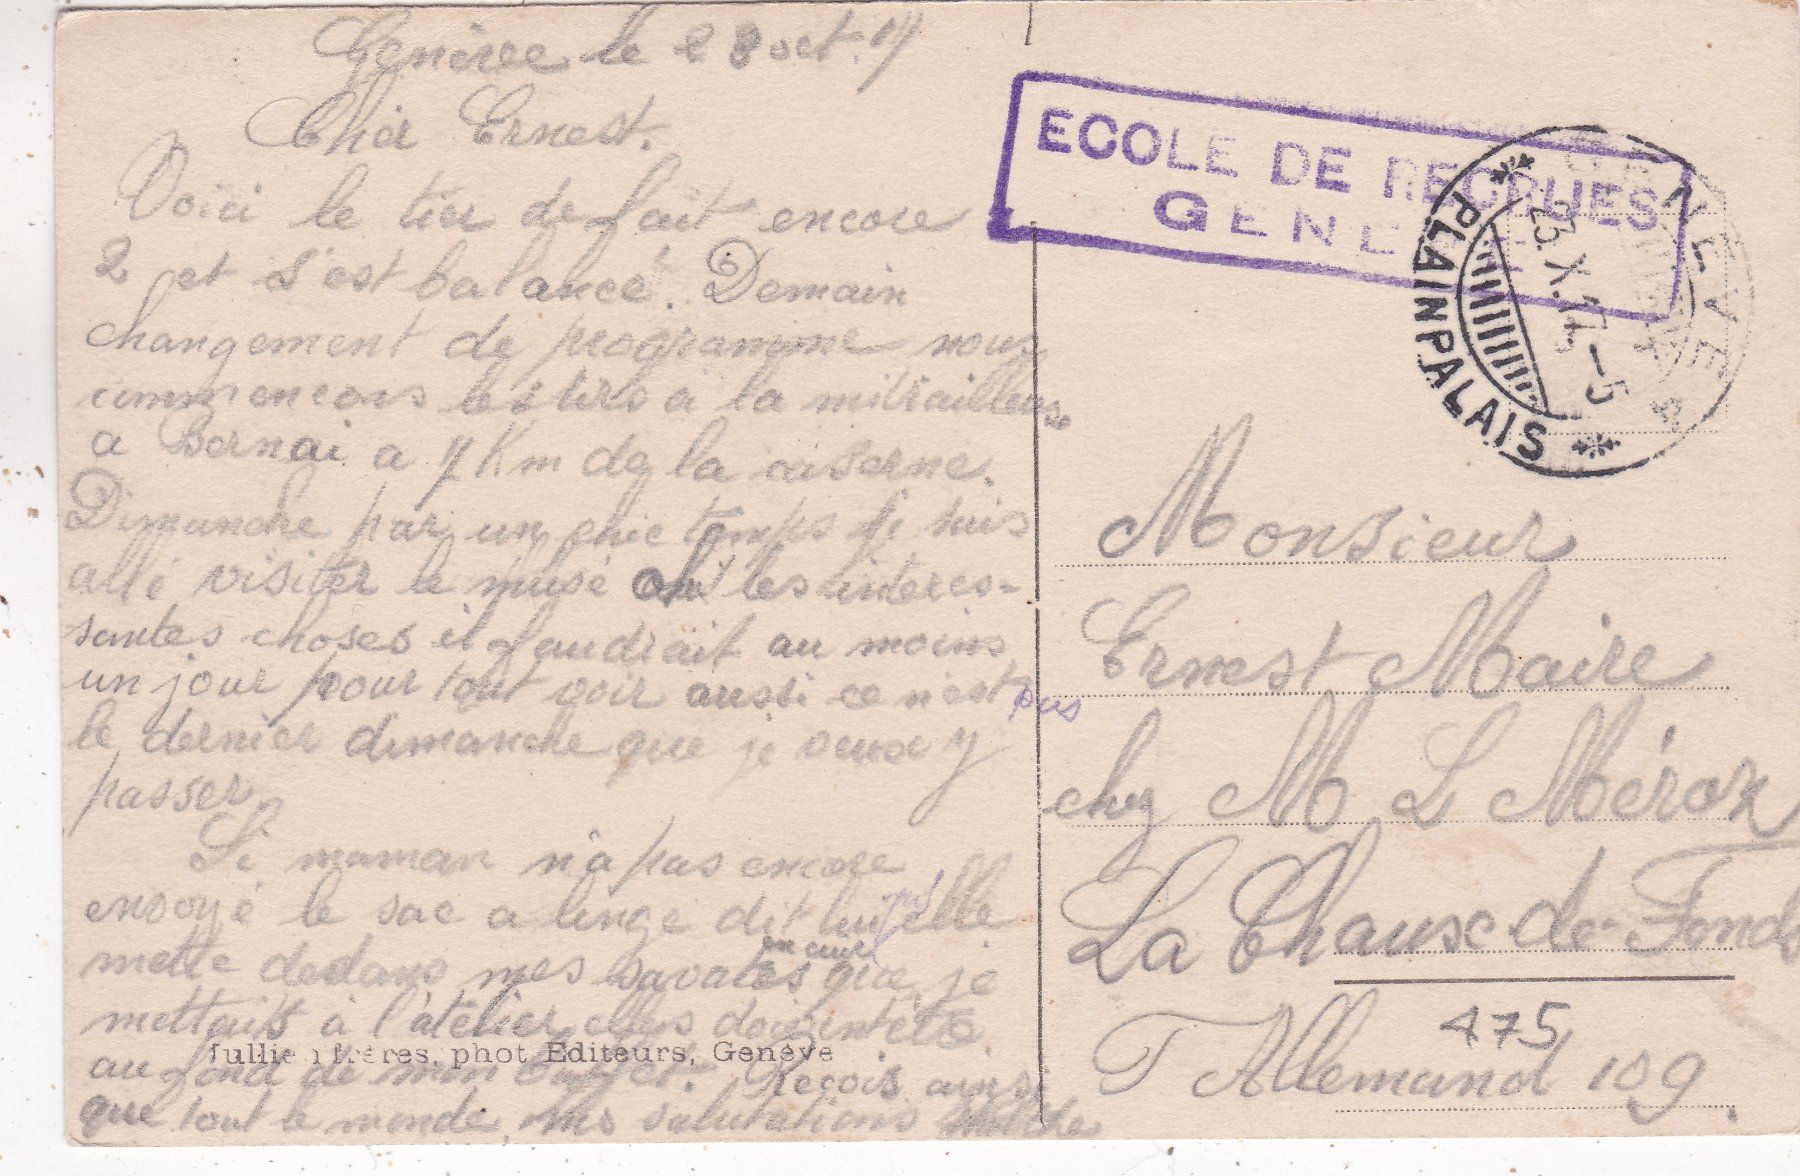 Genève le 23 oct. 17
Cher Ernest.
Voici le tier de fait encore
2 et s'est balancé. Demain
changement de programme nous
commencons les tirs a la mitrailleuse
a Bernai a 7 Km de la caserne.
Dimanche par un chic temps je suis
allé visiter le musé les interes-
santes choses il faudrait au moins
un jour pour tout voir aussi ce n'est pas
le dernier dimanche que je veux y
passer.
Si maman n'a pas encore
envoyé le sac a linge dit lui qu'elle
mette dedans mes savates en cuir que je
mettais à l'atelier elles doivent être
au fond de mon buffet. Reçois ainsi
que tout le monde mes salutations
Jullien frères, phot. Editeurs, Genève
ECOLE DE RECRUES
GENEVE
GENEVE
PLAINPALAIS
23.X.17.-5
Monsieur
Ernest Maire
chez M L Méroz
La Chaux-de-Fonds
475
T Allemand 109.